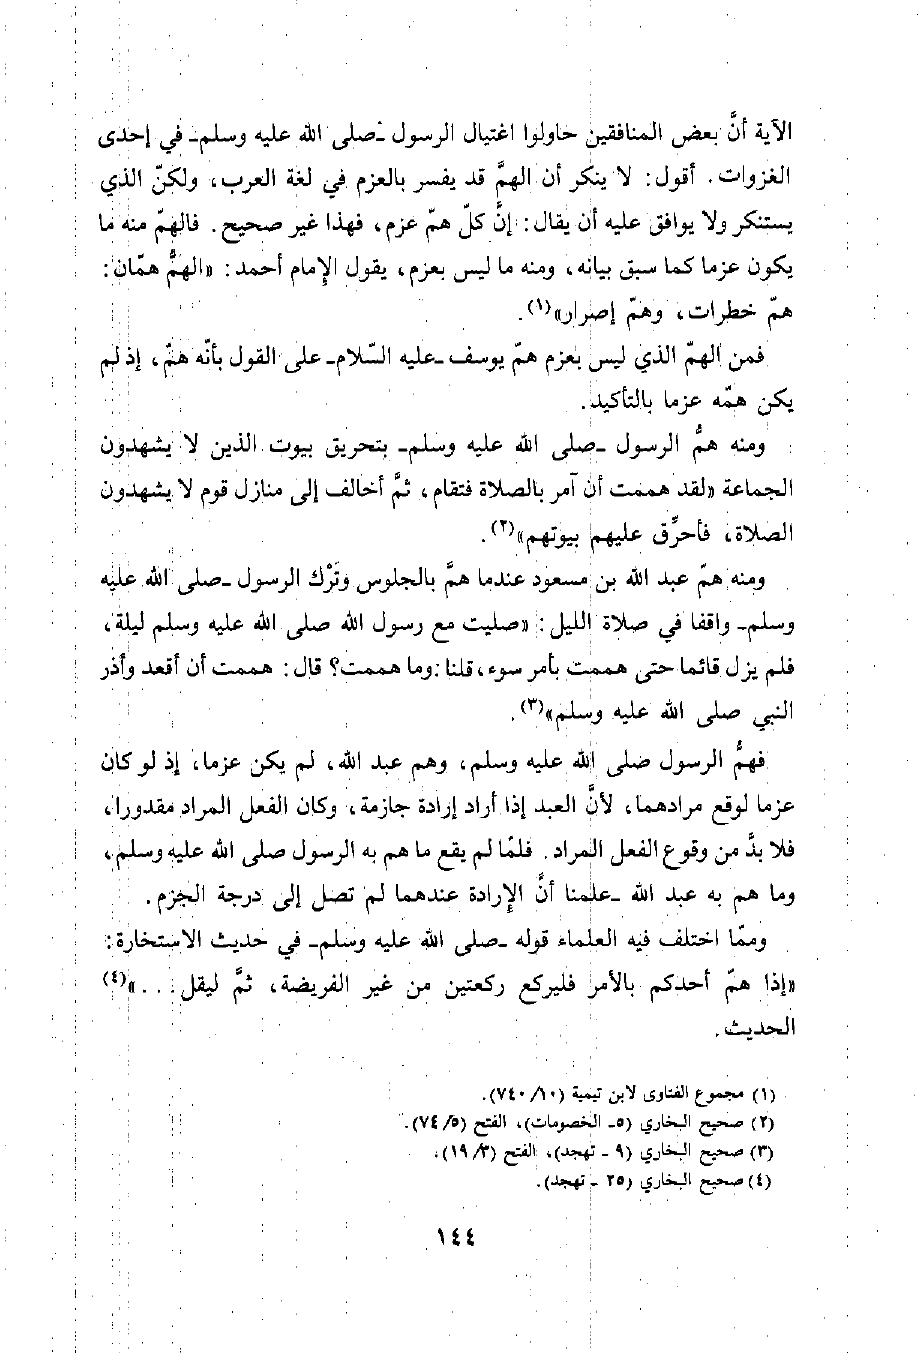 الآية أنَّ بعض المنافقين حاولوا اغتيال الرسول ـصلى الله عليه وسلمـ في إحدى
الغزوات. أقول: لا ينكر أن الهمَّ قد يفسر بالعزم في لغة العرب، ولكنّ الذي
يستنكر ولا يوافق عليه أن يقال: إنَّ كلّ همّ عزم، فهذا غير صحيح. فالهمّ منه ما
يكون عزما كما سبق بيانه، ومنه ما ليس بعزم، يقول الإمام أحمد: «الهمُّ همّان:
همّ خطرات، وهمّ إصرار»(١).
فمن الهمّ الذي ليس بعزم همّ يوسف ـعليه السّلامـ على القول بأنّه همّ، إذ لم
يكن همّه عزما بالتأكيد.
ومنه همُّ الرسول ـصلى الله عليه وسلمـ بتحريق بيوت الذين لا يشهدون
الجماعة «لقد هممت أن آمر بالصلاة فتقام، ثمَّ أخالف إلى منازل قوم لا يشهدون
الصلاة، فأحرِّق عليهم بيوتهم»(٢).
ومنه همّ عبد الله بن مسعود عندما همَّ بالجلوس وتَرْك الرسول ـصلى الله عليه
وسلمـ واقفا في صلاة الليل: «صليت مع رسول الله صلى الله عليه وسلم ليلة،
فلم يزل قائما حتى هممت بأمر سوء، قلنا: وما هممت؟ قال: هممت أن أقعد وأذر
النبي صلى الله عليه وسلم»(٣).
فهمُّ الرسول صلى الله عليه وسلم، وهم عبد الله، لم يكن عزما، إذ لو كان
عزما لوقع مرادهما، لأنَّ العبد إذا أراد إرادة جازمة، وكان الفعل المراد مقدورا،
فلا بدَّ من وقوع الفعل المراد. فلمّا لم يقع ما هم به الرسول صلى الله عليه وسلم،
وما هم به عبد الله ـعلمنا أنَّ الإرادة عندهما لم تصل إلى درجة الجزم.
وممّا اختلف فيه العلماء قوله ـصلى الله عليه وسلمـ في حديث الاستخارة:
«إذا همّ أحدكم بالأمر فليركع ركعتين من غير الفريضة، ثمَّ ليقل...»(٤)
الحديث.
(١) مجموع الفتاوى لابن تيمية (٧٤٠/١٠).
(٢) صحيح البخاري (٥ـ الخصومات)، الفتح (٧٤/٥).
(٣) صحيح البخاري (٩ ـ تهجد)، الفتح (١٩/٣).
(٤) صحيح البخاري (٢٥ ـ تهجد).
١٤٤